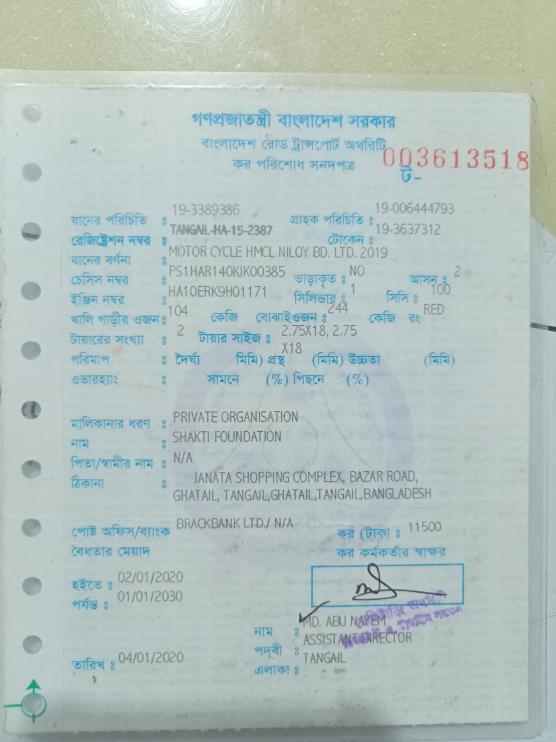 গণপ্রজাতন্ত্রী বাংলাদেশ সরকার
বাংলাদেশ রোড ট্রান্সপোর্ট অথরিটি
কর পরিশোধ সনদপত্র ট- 003613518
যানের পরিচিতি : 19-3389386 গ্রাহক পরিচিতি : 19-006444793
রেজিস্ট্রেশন নম্বর : TANGAIL-HA-15-2387 টোকেন : 19-3637312
যানের বর্ণনা : MOTOR CYCLE HMCL NILOY BD. LTD. 2019
চেসিস নম্বর : PS1HAR140KJK00385 ভাড়াকৃত : NO আসন : 2
ইঞ্জিন নম্বর : HA10ERK9H01171 সিলিন্ডার : 1 সিসি : 100
খালি গাড়ীর ওজন : 104 কেজি বোঝাইওজন : 244 কেজি রং RED
টায়ারের সংখ্যা : 2 টায়ার সাইজ : 2.75X18, 2.75
X18
পরিমাপ : দৈর্ঘ্য মিমি) প্রস্থ (মিমি) উচ্চতা (মিমি)
ওভারহ্যাং : সামনে (%) পিছনে (%)
মালিকানার ধরণ : PRIVATE ORGANISATION
নাম : SHAKTI FOUNDATION
পিতা/স্বামীর নাম : N/A
ঠিকানা : JANATA SHOPPING COMPLEX, BAZAR ROAD,
GHATAIL, TANGAIL,GHATAIL,TANGAIL,BANGLADESH
পোষ্ট অফিস/ব্যাংক BRACKBANK LTD./ N/A কর (টাকা : 11500
বৈধতার মেয়াদ কর কর্মকর্তার স্বাক্ষর
হইতে : 02/01/2020
পর্যন্ত : 01/01/2030
নাম : MD. ABU NAYEM
পদবী : ASSISTANT DIRECTOR
তারিখ : 04/01/2020 এলাকা : TANGAIL